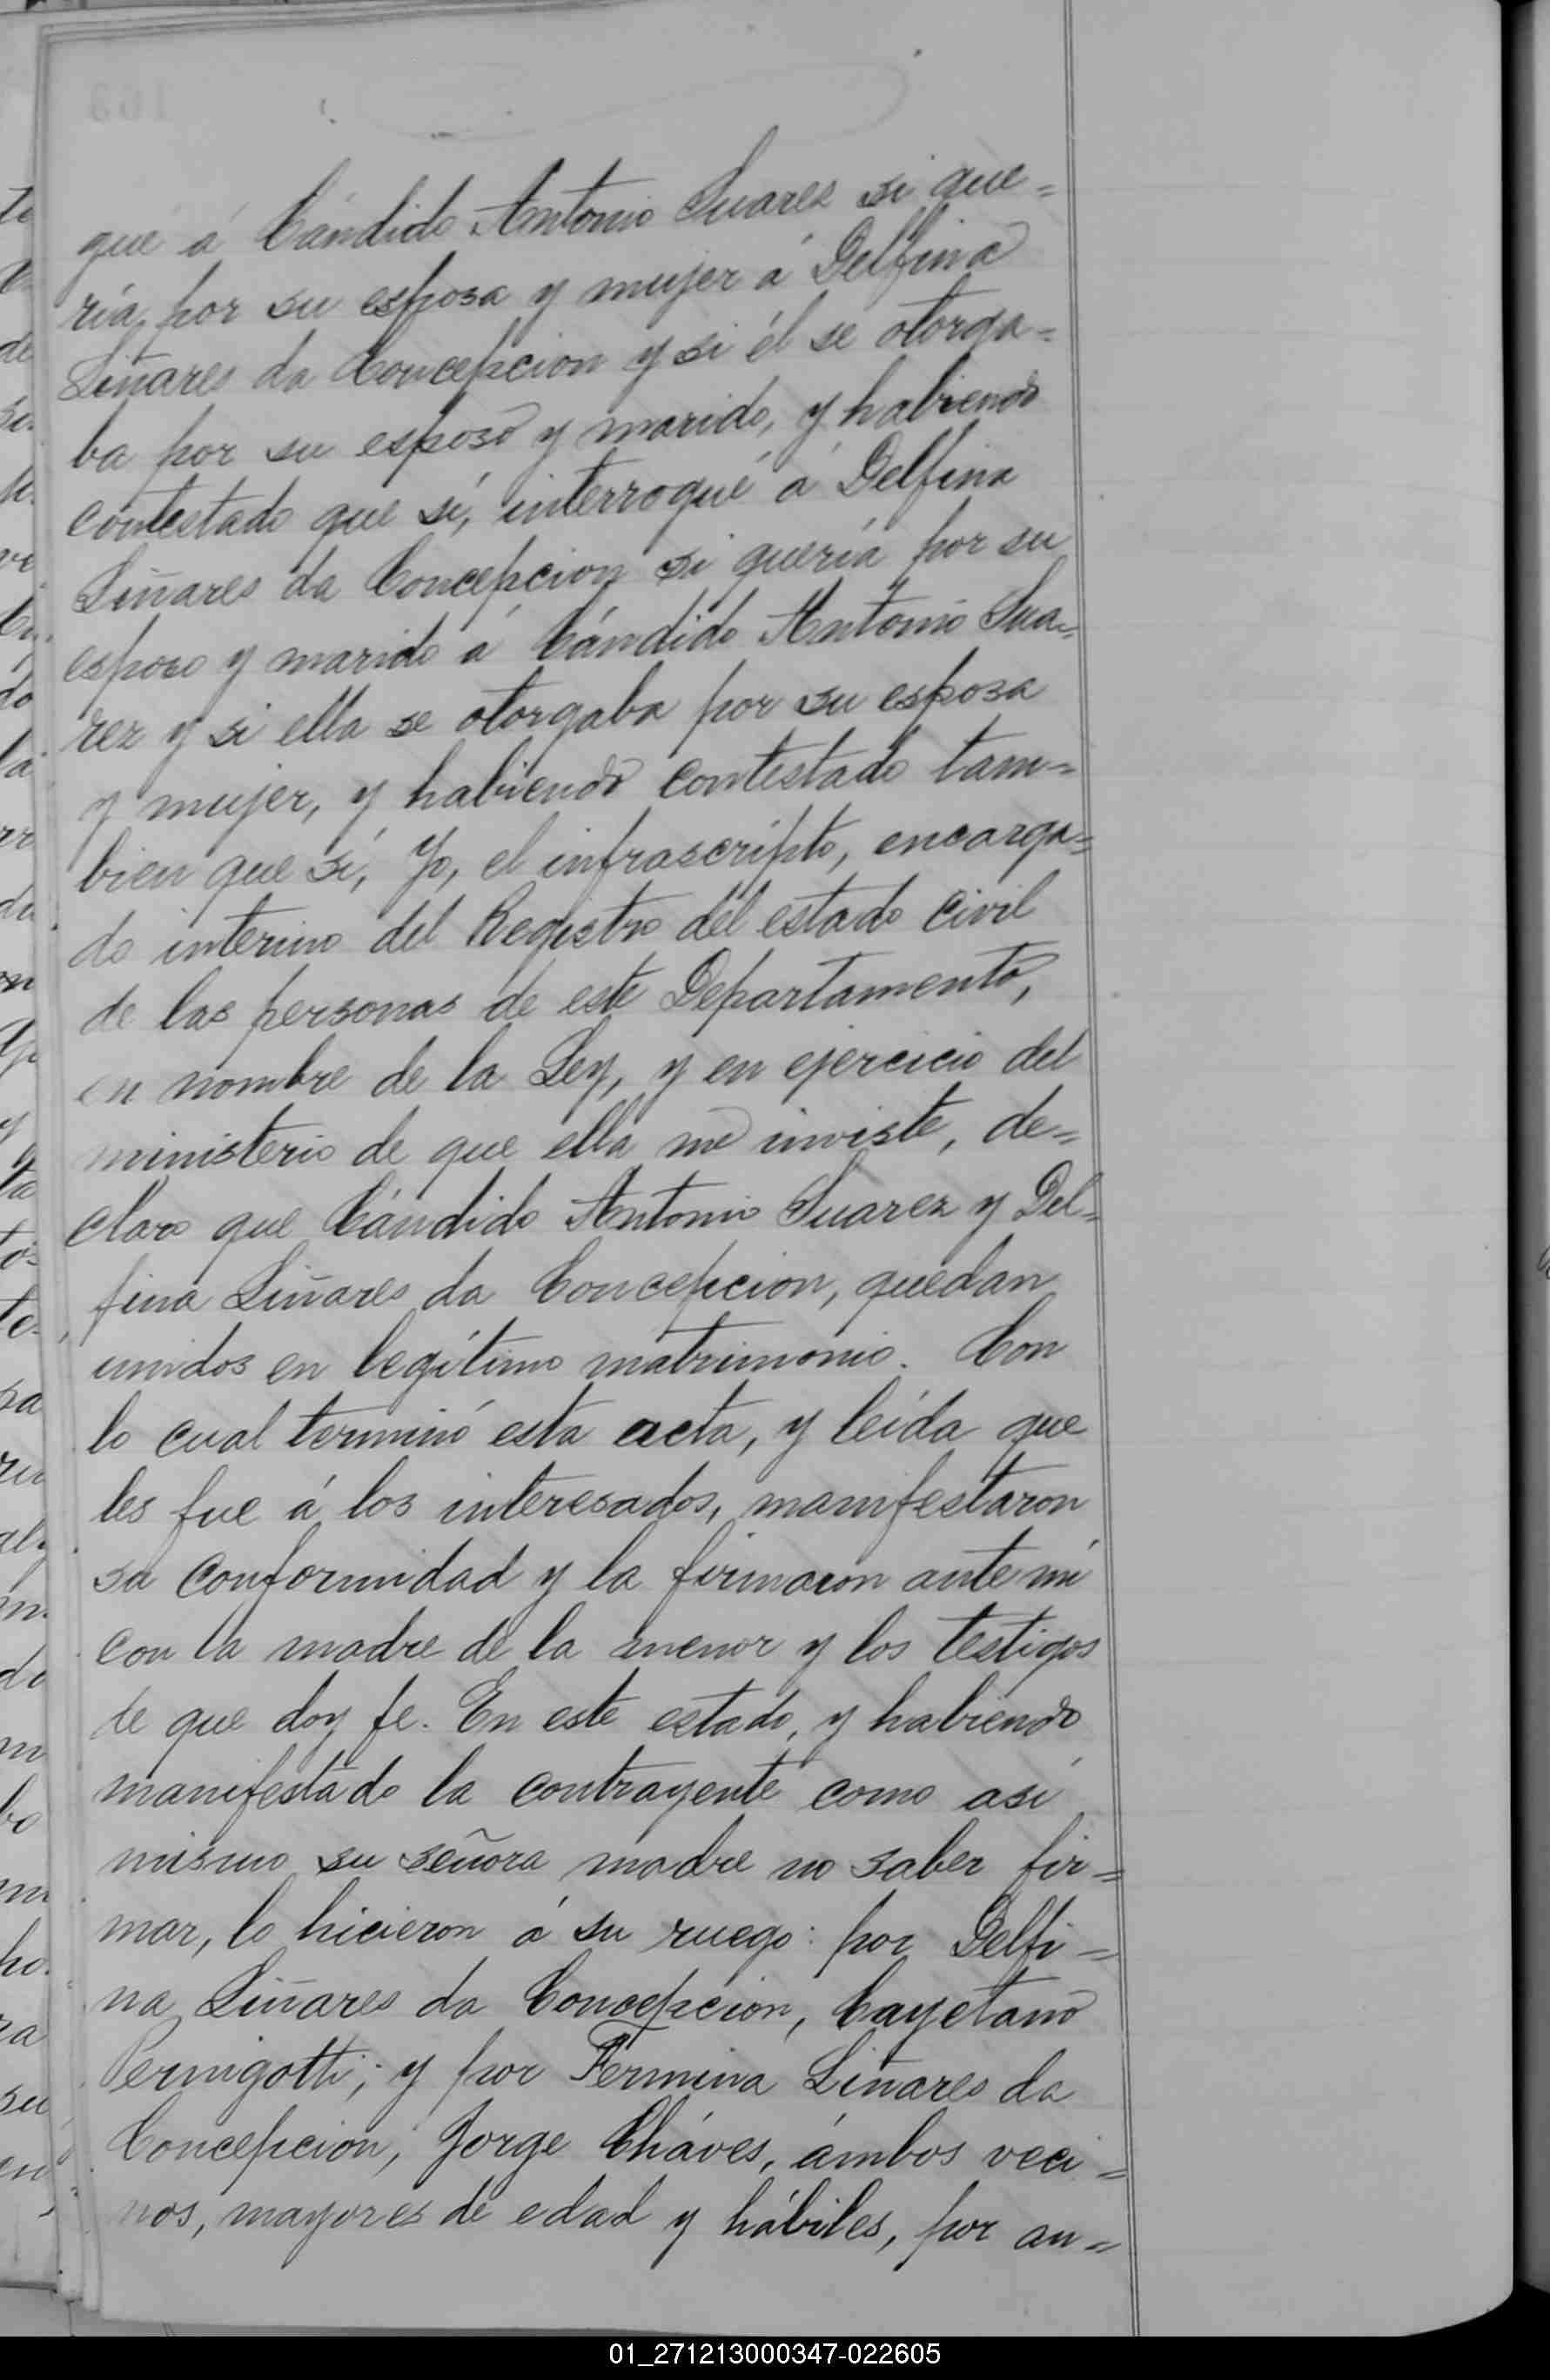 que á Cándido Antonio Suares si que=
ría, por su esposa y mujer á Delfina
Liñares da Concepcion y si él se otorga=
ba por su esposo y marido, y habiendo
contestado que sí, interrogué á Delfina
Liñares da Concepcion si quería por su
esposo y marido á Cándido Antonio Sua=
rez y si ella se otorgaba por su esposa
y mujer, y habiendo contestado tam=
bien que sí, Yo, el infrascripto, encarga=
do interino del Registro del estado civil
de las personas de este Departamento,
en nombre de la Ley, y en ejercicio del
ministerio de que ella me inviste, de=
claro que Cándido Antonio Suarez y Del=
fina Liñares da Concepcion, quedan
unidos en legítimo matrimonio. Con
lo cual terminó esta acta, y leída que
les fue á los interesados, manifestaron
su conformidad y la firmaron ante mí
con la madre de la menor y los testigos
de que doy fe. En este estado, y habiendo
manifestado la contrayente como así
mismo su señora madre no saber fir=
mar, lo hicieron á su ruego: por Delfi=
na Liñares da Concepcion, Cayetano
Pernigotti; y por Fermina Liñares da
Concepcion, Jorge Cháves, ámbos veci=
nos, mayores de edad y hábiles, por an=
01_271213000347-022605